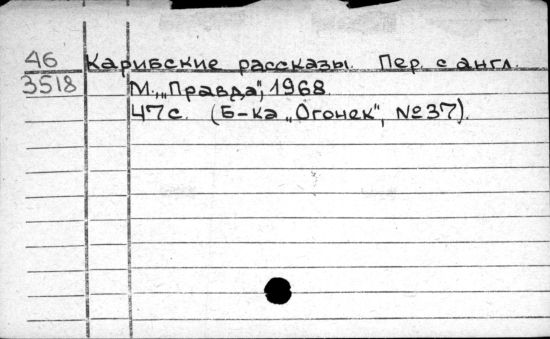 46 Карибские рассказы. Пер. с англ.
3518 М., „Правда", 1968.
47с. (Б-ка „Огонек", №37).